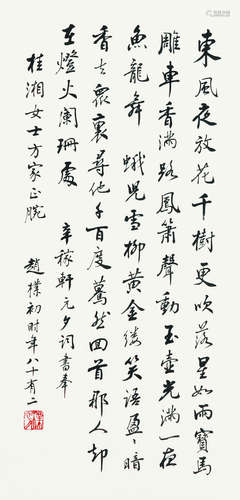 東風夜放花千樹更吹落星如雨寶馬
雕車香滿路鳳簫聲動玉壺光滿一夜
魚龍舞 蛾兒雪柳黃金縷笑語盈〻暗
香去眾裏尋他千百度驀然回首那人却
在燈火闌珊處 辛稼軒元夕詞書奉
桂湘女士方家正腕 趙樸初時年八十有二